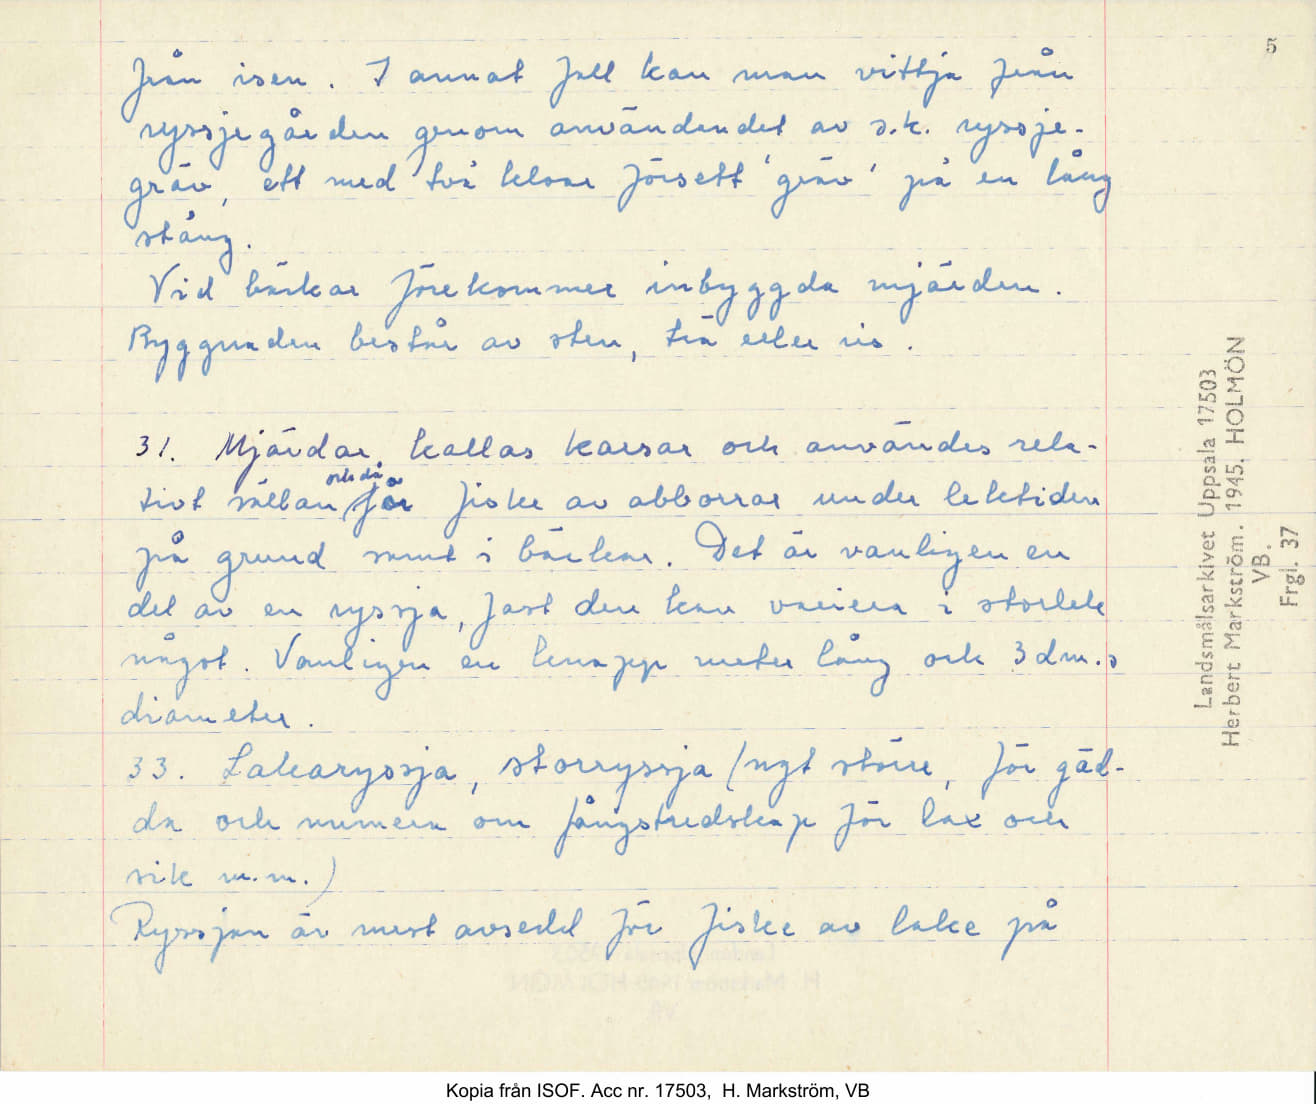 5
från isen. I annat fall kan man vittja från
ryssjegården genom användendet av s.k. ryssje-
gräv, ett med två kloar försett 'gräv' på en lång
stång.
Vid bäckar förekommer inbyggda mjärden.
Byggnaden består av sten, trä eller ris.
31. Mjärdar kallas karsar och användes rela-
tivt sällan för fiske av abborrar under lektiden
på grund samt i bäckar. Det är vanligen en
del av en ryssja, fast den kan variera i storlek
något. Vanligen en knapp meter lång och 3 dm.s
diameter.
33. Lakaryssja, storryssja (ngt större, för gäd-
da och numera om fångstredskap för lax och
sik m.m.)
Ryssjan är mest avsedd för fiske av lake på
Landsmålsarkivet Uppsala 17503
Herbert Markström. 1945. HOLMÖN
VB.
Frgl. 37
Kopia från ISOF. Acc nr. 17503, H. Markström, VB